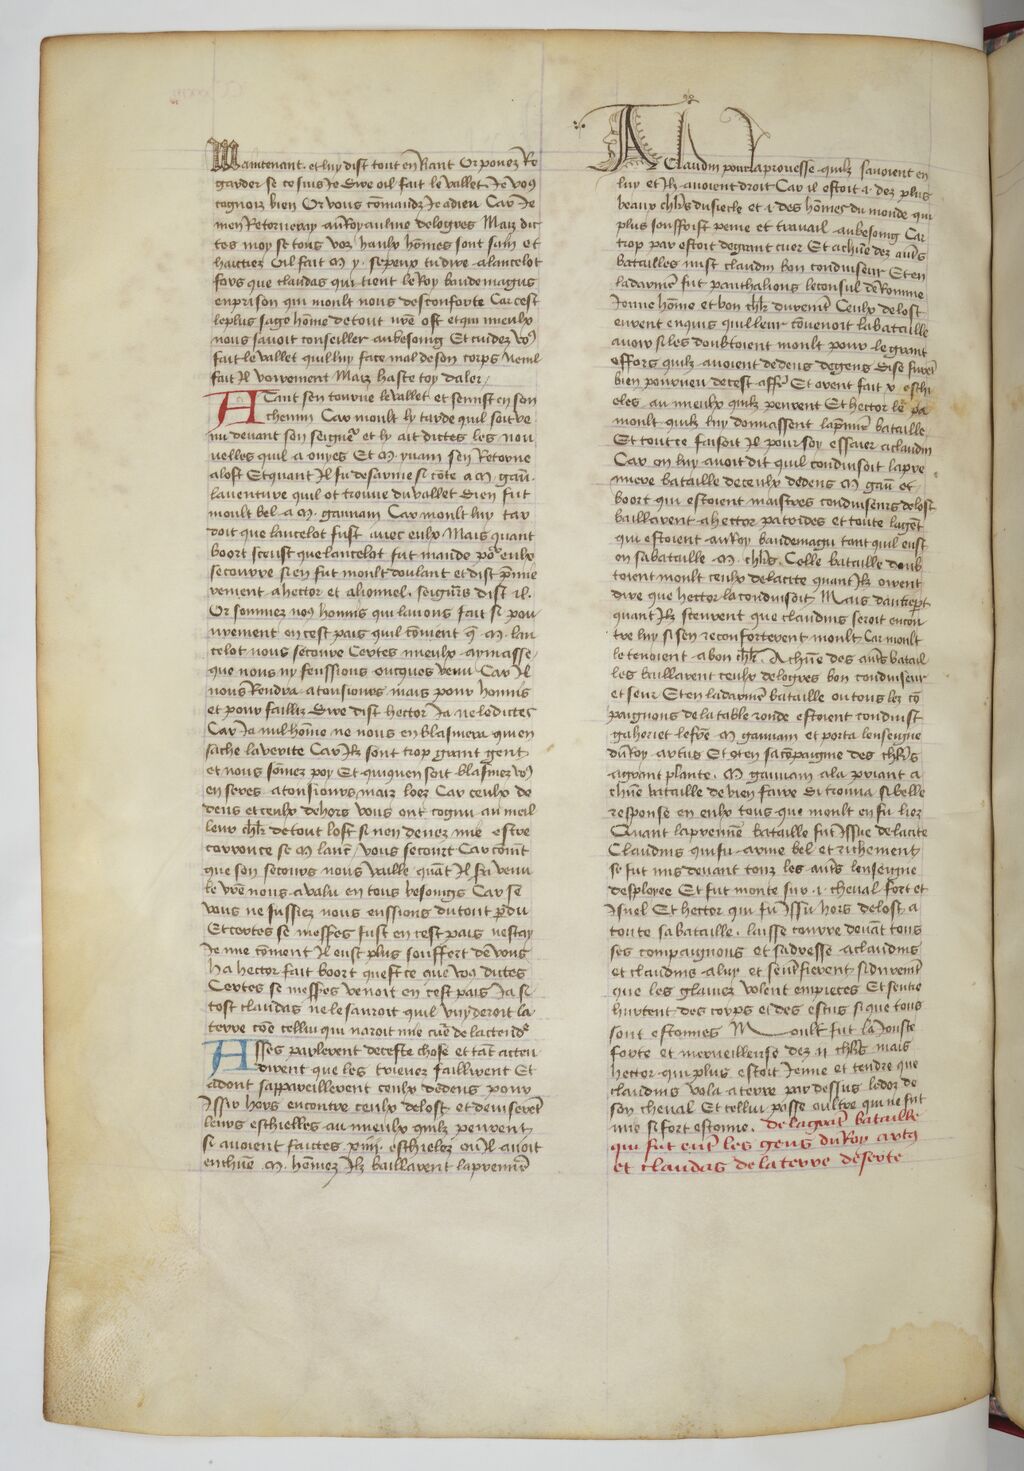 Maintenant. et luy dist tout en Riant Or povez Re
garder se ce suis Je Sire oil fait le vallet Je vo9
cognois bien Or vous comandz Je adieu Car Je
men Retorneray au Roy au line de logres Maiz dic
tes moy se tous voz haulx hommes sont sain et
haictiez Oil fait
fors que claudas qui tient le Roy baudemagus
en prison qui moult nous desconforte Car cest
le plus sage homme de tout nre ost et qui mieulx
nous savoit conseiller au besoing Et cuidez vo9
fait le vallet quil luy face mal de son corps Nenil
fait Il voirement Maiz haste toy daler
Atant sen tourne le vallet et se mist en son
chemin Car moult ly tarde quil soit ve
nu devant son seigneur et ly ait dictes les nou
uelles quil a ouyes Et M. yuain sen Retorne
a lost Et quant Il fu desarme si cote a M. gau.
lauenture quil ot trouue du vallet Bien fut
moult bel a M. gauuain Car moult luy tar
doit que lancelot fust auec eulx Mais quant
boort sceust que lancelot fut mande por eulx
secourre si en fut moult doulant et dist p̃mie
rement a hector et a lionnel. seigneurs dist il.
Or sommez no9 honnis qui lauons fait si pou
urement en cest pais quil coment q̃ M. lan
celot nous secoure Certes mieulx aymasse
que nous ny feussions oncques venu Car Il
nous Rendra a tousiours mais pour honnis
et pour failliz Sire dist hector Ja ne le dictes
Car Ja nul homme ne nous en blasmera qui en
sache la verite Car Ilz sont trop grant gent
et nous somez poy Et qui quen soit blasmez vo9
en seres a tousiours maiz loez Car ceulx de
dens et ceulx dehors vous ont cognu au meil
leur chlr de tout lost si nen devez mie estre
corrouce se M. lanc̃ vous secourt Car comt
que son secours nous vaille quãt Il fu venu
le vre nous a valu en tous besoings Car se
vous ne fussiez nous eussions du tout p̃du
Et certes se messes fust en cest pais ne stay
Je mie coment Il eust plus souffert de vous
ha hector fait boort quest ce que vo9 dictes
Certes se messes venoit en cest pais Ja si
tost claudas ne le sauroit quil vuyderoit la
terre coe cellui qui naroit mie cure de lactendr
Asses parlerent de ceste chose et tãt atten
dirent que les trieuez faillirent Et
adont sappareillerent ceulx dedens pour
Issir hors encontre ceulx de lost et deuiserent
leurs eschielles au mieulx quilz peurent
si auoient faictes xiiij. eschielez ou Il auoit
en chune M. homez Ilz baillerent la premiere
A Claudin pour la prouesse quilz sauoient en
luy et Ilz auoient droit Car il estoit .i. dez plus
beaux chlrs du siecle et .i. des homes du monde qui
plus souffrist peine et trauail au besoing Car
trop par estoit de grant cuer Et a chune dez autrs
batailles mist claudin bon conduiseur Et en
la darniere fut panthalions le consul de Romme
Jenne home et bon chlr durement Ceulx de lost
eurent enquis quil leur couenoit la bataille
auoir si les doubtoient moult pour le grant
effors quilz auoient dedens de gens
bien pourueu de cest affr̃ Et orent fait x eschi
eles au mieulx quilz peurent Et hector le pa
moult quilz luy donnassent la p̃miere bataille
Et tout ce faisoit Il pour soy essaier a claudin
Car on luy auoit dit quil conduisoit la pre
miere bataille de ceulx dedens M. gau̅ et
boort qui estoient maistres conduiseurs de lost
baillerent a hector patrides et toute la gẽt
qui estoient au Roy baudemagu tant quil eust
en sa bataille .M. chlrs. Celle bataille doub
toient moult ceulx de la cite quant Ilz oirent
dire que hector la conduisoit Mais dautrepart
quant Ilz sceurent que claudins seroit encon
tre luy si sen reconforterent moult Car moult
le tenoient a bon chlr. A chune des autrs batail
les baillerent ceulx de logres bon conduiseur
et seur Et en la darniere bataille ou tous lez co
paignons de la table ronde estoient conduist
gaheriet le frere M. gauuain et porta lenseigne
du Roy artus Et oten sa copaignie des chlrs
a grant plante. M. gauuain ala priant a
chune bataille de bien faire Si trouua si belle
response en eulx tous que moult en fu liez
Quant la premiere bataille fut Issue de la cite
Claudins qui fu arme bel et richement
se fut mis deuant touz les autrs lenseigne
desploiee Et fut monte sur .i. cheval fort et
Isnel Et hector qui fu Issu hors de lost a
toute sa bataille. laisse courre deuãt tous
ses compaignons et sadresse a claudins
et claudins a luy et se entrefierent si durement
que les glaiuez volent en pieces Et sentre
hurtent des corps et des escus si que tous
sont estonnes Moult fut la Jouste
forte et merueilleuse dez ij chlrs mais
hector qui plus estoit Jenne et tendre que
claudins vola a terre par dessus le dos de
son cheual Et cellui passe oultre qui ne fut
mie si fort estonne. De la grãt bataille
qui fut entre les gens du Roy artus
et claudas de la terre deserte